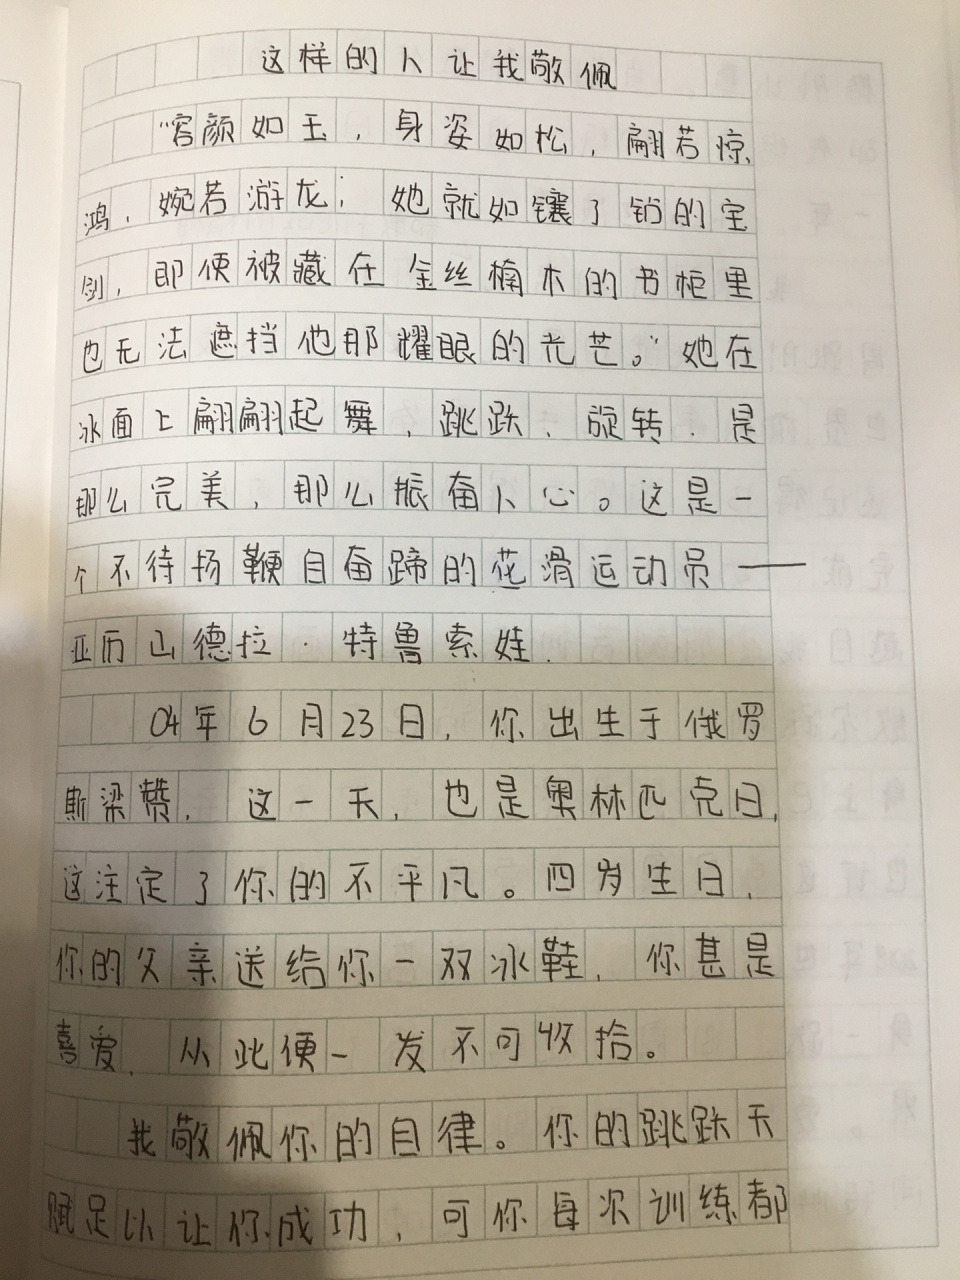 这样的人让我敬佩
“容颜如玉，身姿如松，翩若惊
鸿，婉若游龙；她就如镶了钻的宝
剑，即便被藏在金丝楠木的书柜里
也无法遮挡他那耀眼的光芒。”她在
冰面上翩翩起舞，跳跃、旋转.是
那么完美，那么振奋人心。这是一
个不待扬鞭自奋蹄的花滑运动员——
亚历山德拉·特鲁索娃.
04年6月23日，你出生于俄罗
斯梁赞，这一天，也是奥林匹克日，
这注定了你的不平凡。四岁生日，
你的父亲送给你一双冰鞋，你甚是
喜爱，从此便一发不可收拾。
我敬佩你的自律。你的跳跃天
赋足以让你成功，可你每次训练都